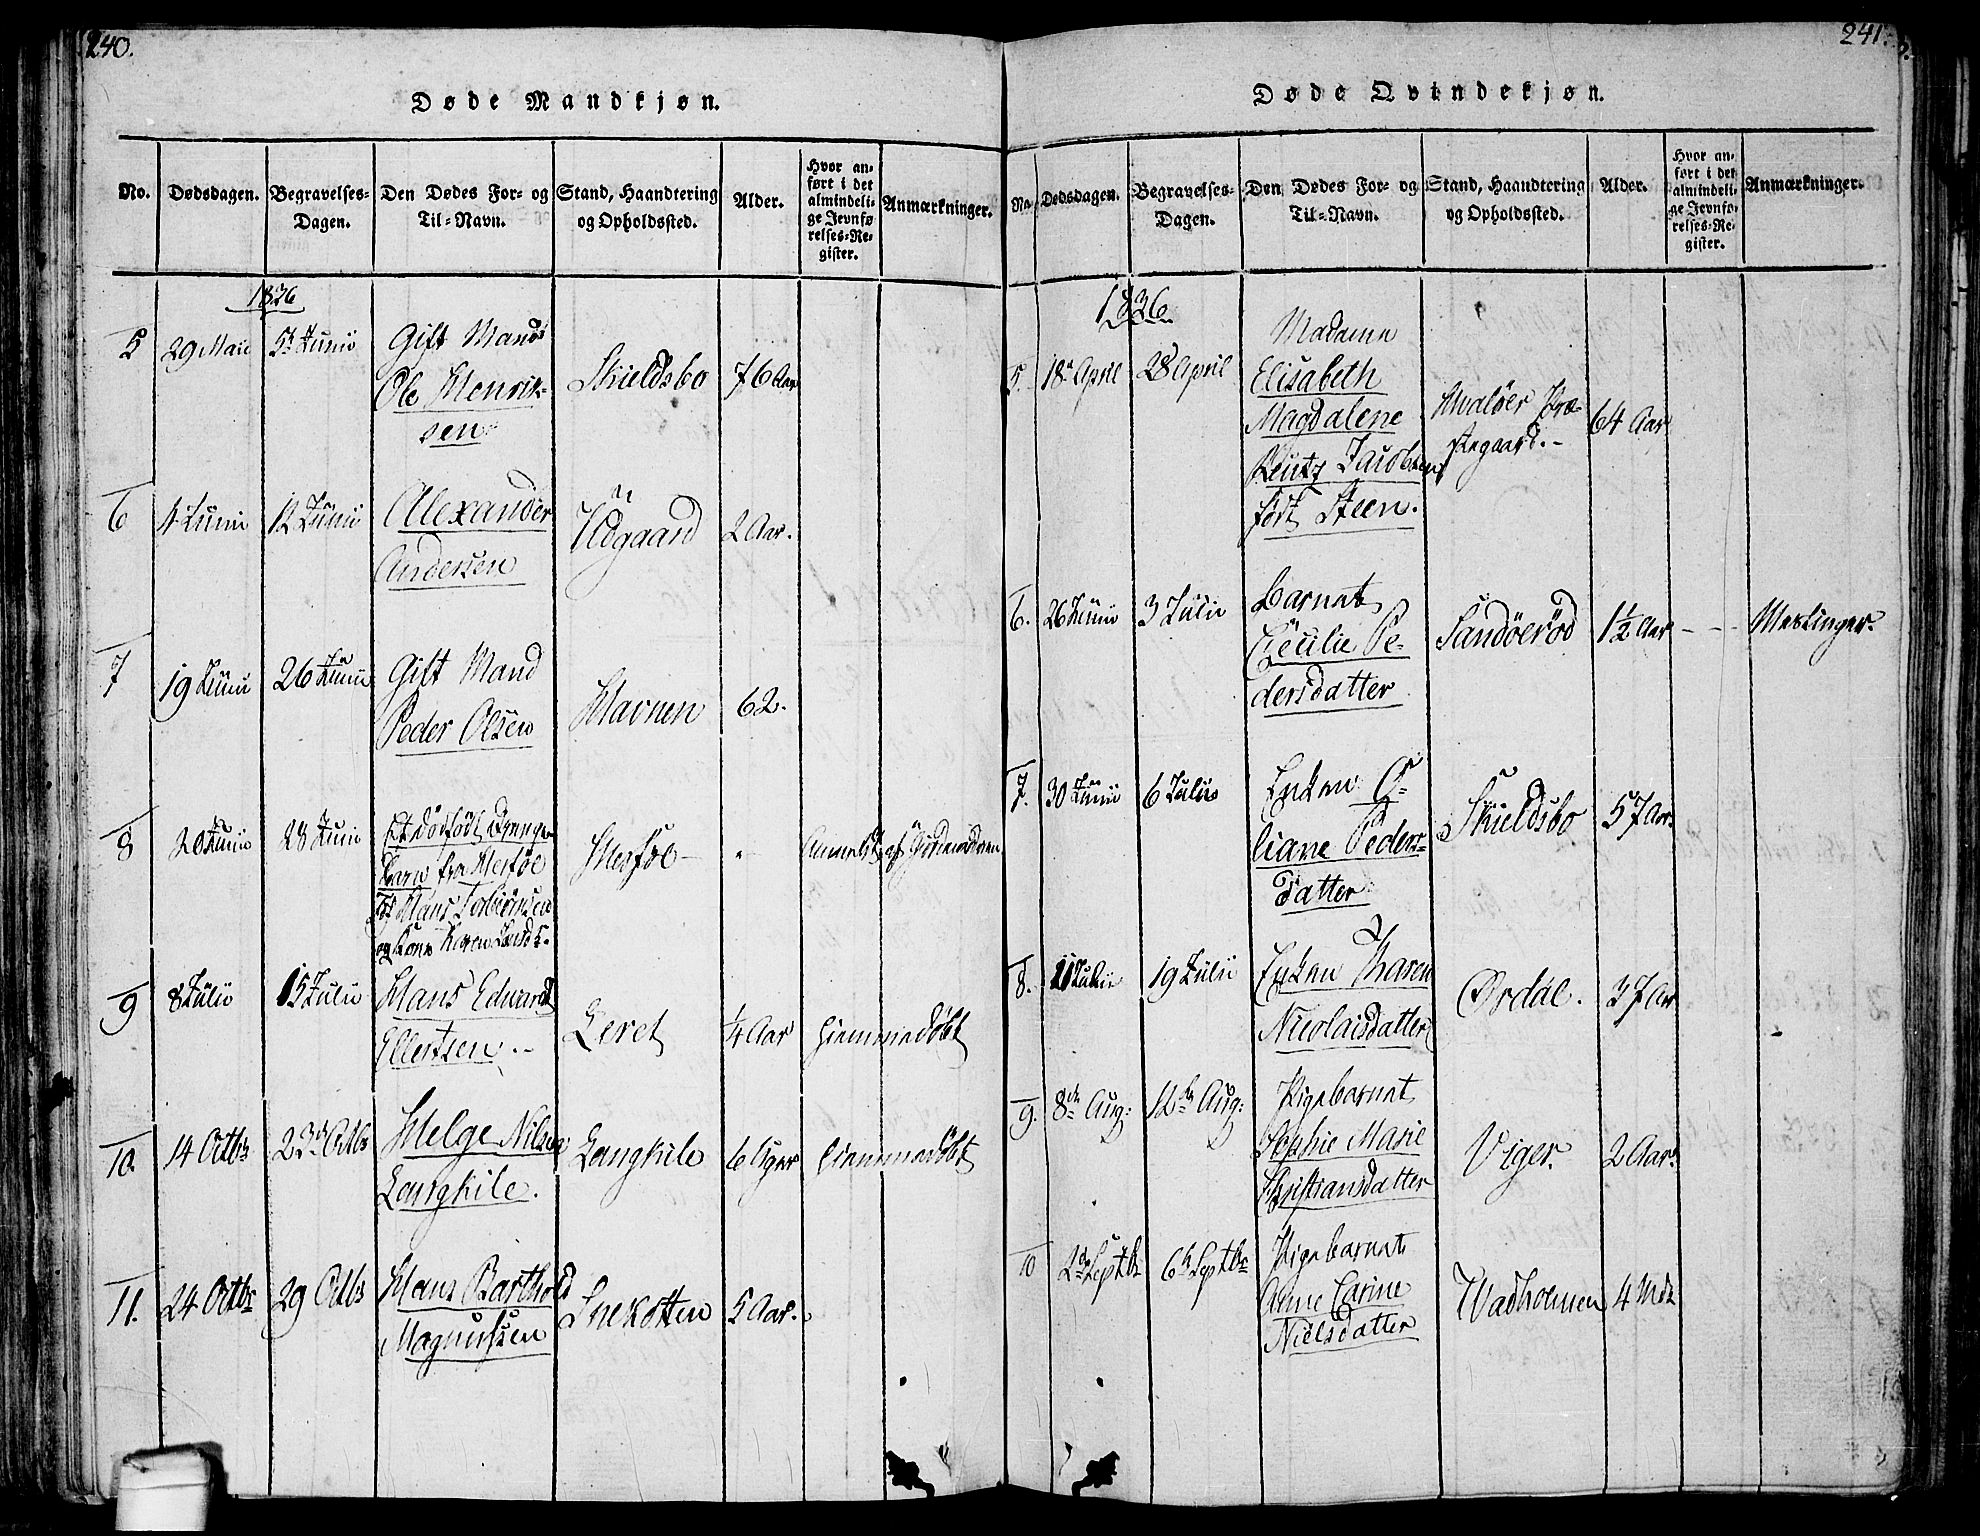 240.
Døde Mandkjøn.
No. Dødsdagen. Begravelses-Dagen. Den Dødes For- og Til-Navn. Stand, Haandtering og Opholdssted. Alder. Hvor anført i det almindelige Jevnførelses-Register. Anmærkninger.
1836
5 29 Maii 5 Junii Gift Mand
Ole Henrik-
sen
Skieldsbo 76 Aar
6 4 Junii 12 Junii Alexander
Andersen
Ødegaard 2 Aar.
7 19 Junii 26 Junii Gift Mand
Peder Olsen
Havnen 62.
8 20 Junii 28 Junii Et dødfødt Drenge-
Barn fra Herføl
Hans Torbiørnsen
og Kone Karen
Herføl - " Anmeldt af Jordemoderen
9 8 Julii 15 Julii Hans Edward
Ellertsen
Leret 1/4 Aar hiemmedøbt
10. 14 Octbr 23 Octbr Helge Nilsen
Langkile.
Langkile 6 Uger hiemmedøbt
11. 24 Octbr 29 Octbr Hans Barthold
Magnussen
Snekotten 5 Aar.
241.
Døde Qvindekjøn.
No. Dødsdagen. Begravelses-Dagen. Den Dødes For- og Til-Navn. Stand, Haandtering og Opholdssted. Alder. Hvor anført i det almindelige Jevnførelses-Register. Anmærkninger.
1836.
5. 18 April 28 April Madame
Elisabeth
Magdalene
Jacobsen
født Steen.
Hvaløer Præ-
stegaard. 64 Aar
6. 26 Junii 3 Julii Barnet
Cecilie Pe-
dersdatter
Sandøerød 1½ Aar - - Meslinger.
7. 30 Junii 6 Julii Enken O-
liane Peders-
datter
Skieldsbo 57 Aar.
8. 11 Julii 19 Julii Enken Karen
Nicolaisdatter
Ørdal. 37 Aar
9. 8de Aug: 12te Aug: Pigebarnet
Sophie Marie
Christiansdatter
Viger. 2 Aar.
10 2d Septbr 6te Septbr Pigebarnet
Anne Carine
Nielsdatter
Wadholmen 4 Mdr